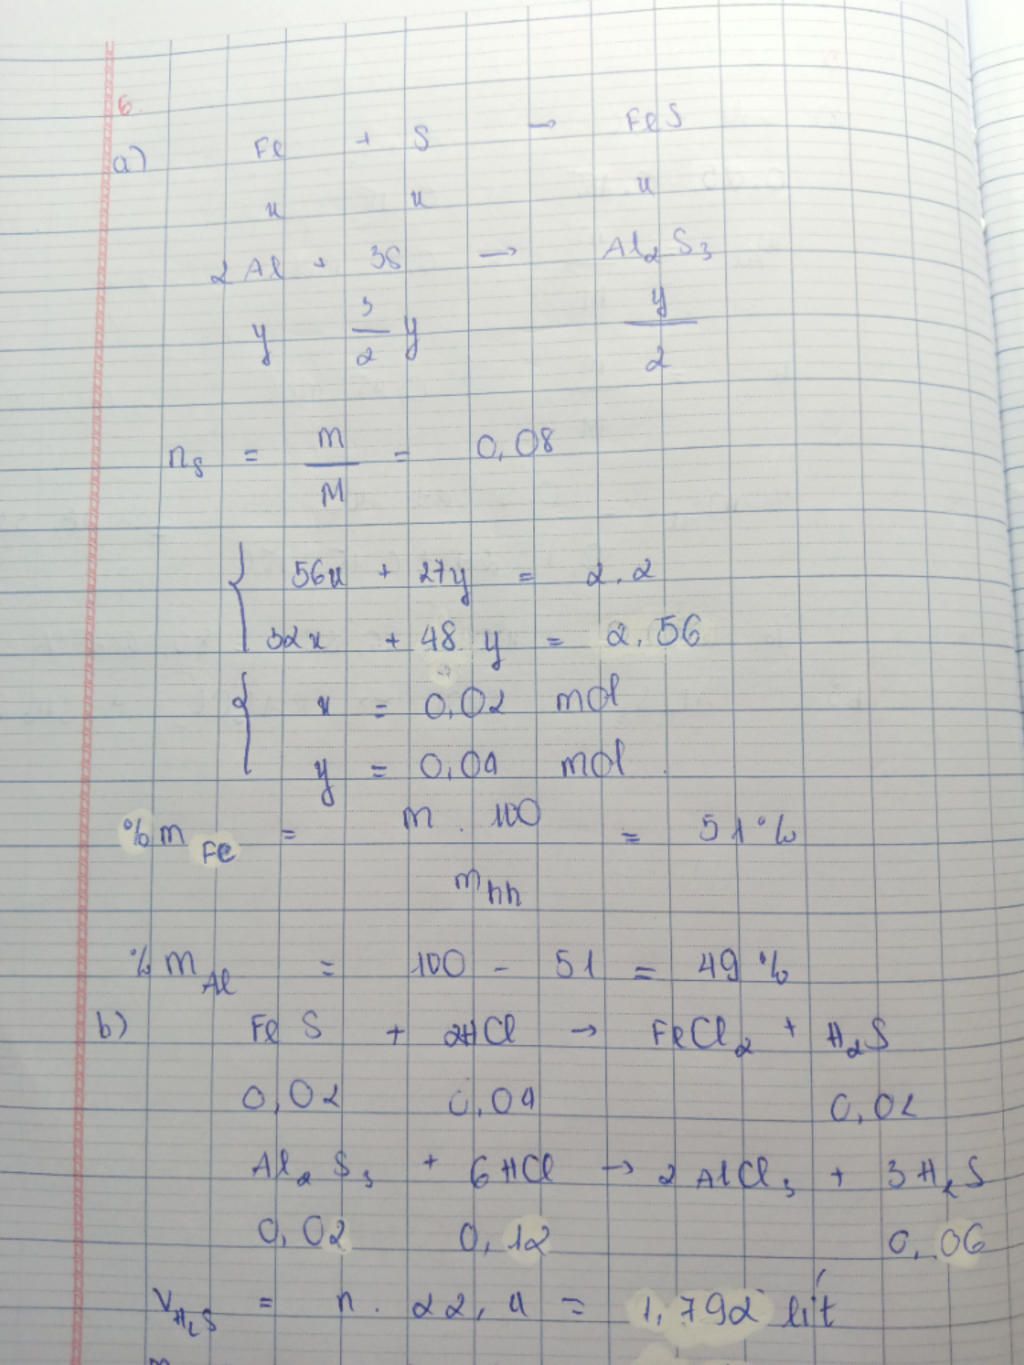 6.
a) Fe + S → FeS
x x x
2Al + 3S → Al₂S₃
y 3/2 y y/2
nₛ = m/M = 0,08
56x + 27y = 2.2
32x + 48y = 2.56
x = 0,02 mol
y = 0,04 mol
%m Fe = m . 100 / mhh = 51%
%m Al = 100 - 51 = 49%
b) FeS + 2HCl → FeCl₂ + H₂S
0,02 0,04 0,02
Al₂S₃ + 6HCl → 2AlCl₃ + 3H₂S
0,02 0,12 0,06
V H₂S = n. 22,4 = 1,792 lít